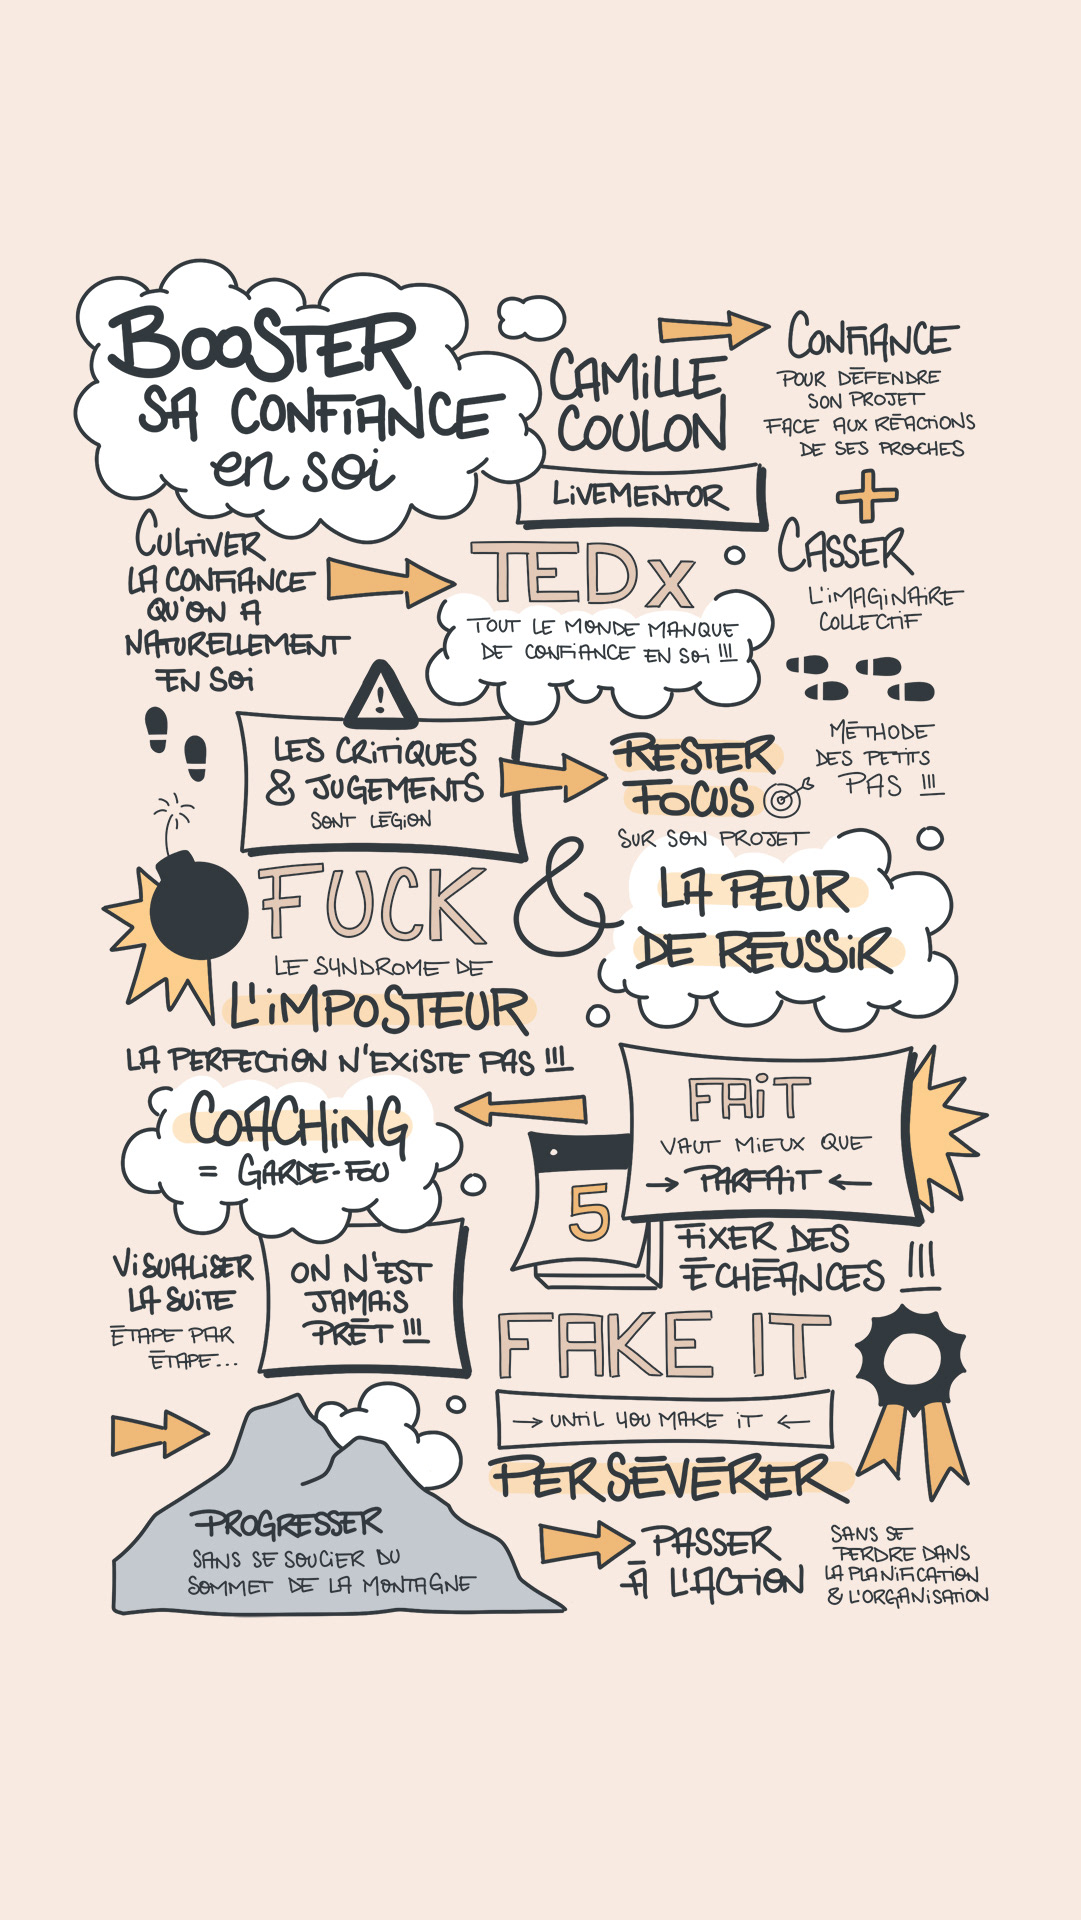 BOOSTER
SA CONFIANCE
en soi
CAMILLE
COULON
LIVEMENTOR
CONFIANCE
POUR DÉFENDRE
SON PROJET
FACE AUX RÉACTIONS
DE SES PROCHES
+
CASSER
L'IMAGINAIRE
COLLECTIF
CULTIVER
LA CONFIANCE
QU'ON A
NATURELLEMENT
EN SOI
TEDx
TOUT LE MONDE MANQUE
DE CONFIANCE EN SOI !!!
MÉTHODE
DES PETITS
PAS !!!
!
LES CRITIQUES
& JUGEMENTS
SONT LÉGION
RESTER
FOCUS
SUR SON PROJET
FUCK
LE SYNDROME DE
L'IMPOSTEUR
&
LA PEUR
DE RÉUSSIR
LA PERFECTION N'EXISTE PAS !!!
FAIT
VAUT MIEUX QUE
→ PARFAIT ←
COACHING
= GARDE-FOU
5
FIXER DES
ÉCHÉANCES !!!
VISUALISER
LA SUITE
ÉTAPE PAR
ÉTAPE...
ON N'EST
JAMAIS
PRÊT !!!
FAKE IT
→ UNTIL YOU MAKE IT ←
PERSÉVÉRER
PROGRESSER
SANS SE SOUCIER DU
SOMMET DE LA MONTAGNE
PASSER
À L'ACTION
SANS SE
PERDRE DANS
LA PLANIFICATION
& L'ORGANISATION